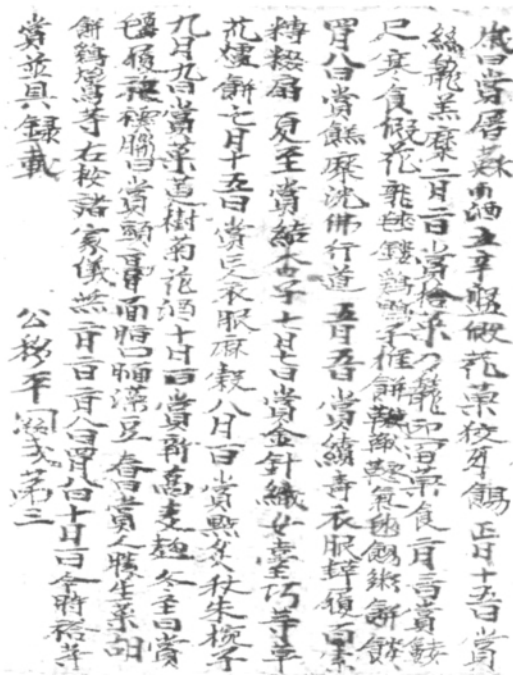 歲日賞屠蘇酒五辛盤假花菓狡牙餳正月十五日賞
絲籠羔糜二月二日賞拾菜刀籠迎冨菜食二月三日賞鏤
尺寒食假花毬鏤鷄鴨子推餅鞭鞦韆氣毬餳粥餅餤
四月八日賞餻糜沈佛行道五月五日賞續壽衣服辟履百索
糉扇夏至賞結杏子七月七日賞金針織女臺巧等草
花煖餅七月十五日賞衣服麻穀八月一日賞點炙杖朱椀子
九月九日賞茱萸樹菊花酒十月一日賞新篙麦麴冬至日賞
氈履襪臘日賞頭膏面脂口脂藻豆春日賞人勝生菜胡
餅鷄鳥等右按諸家儀無二月二日二月八日四月八日十月一日今時俗等
賞並具録載
公移平闕式第三